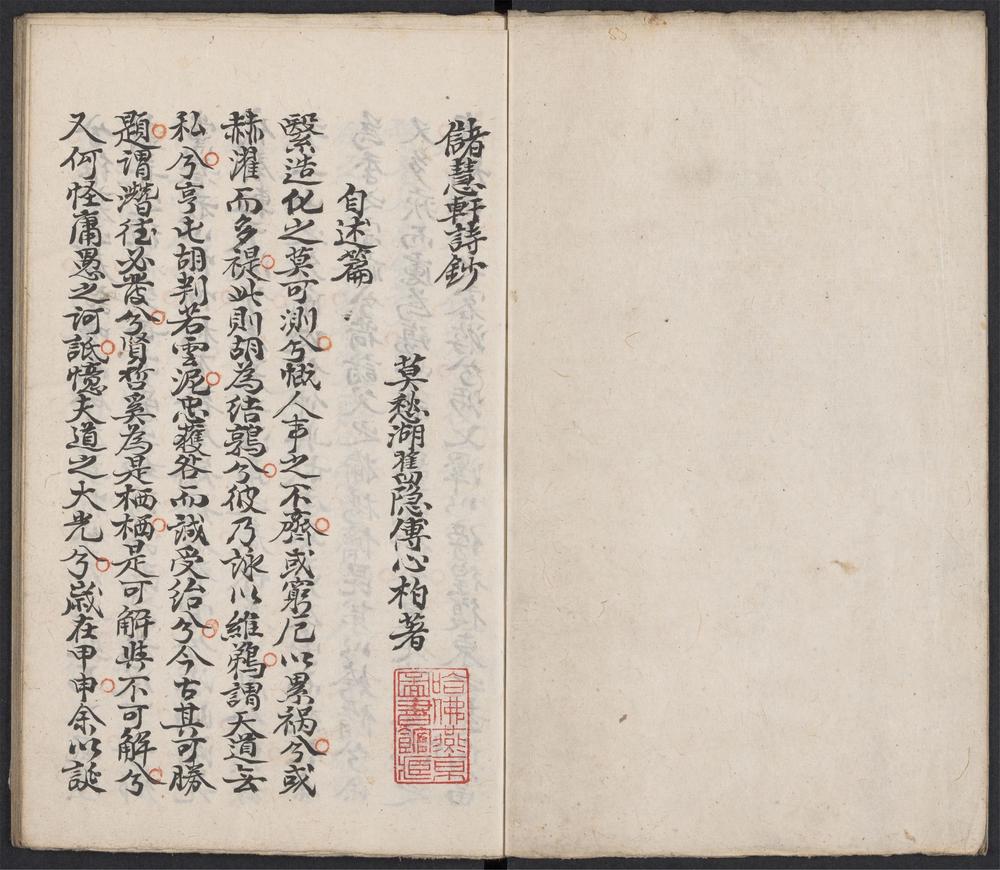 儲慧軒詩鈔
莫愁湖舊隱傅心柏著
自述篇
繄造化之莫可測兮慨人事之不齊或窮戹以累禍兮或
赫濯而多禔此則胡為結鶉兮彼乃詠以維鵜謂天道無
私兮亨屯胡判若雲泥忠獲咎而誠受紿兮今古其可勝
題謂潛德必發兮賢哲奚為是栖栖是可解與不可解兮
又何怪庸愚之訶詆憶夫道之大光兮歲在甲申余以誕
哈佛燕京
圖書館
83